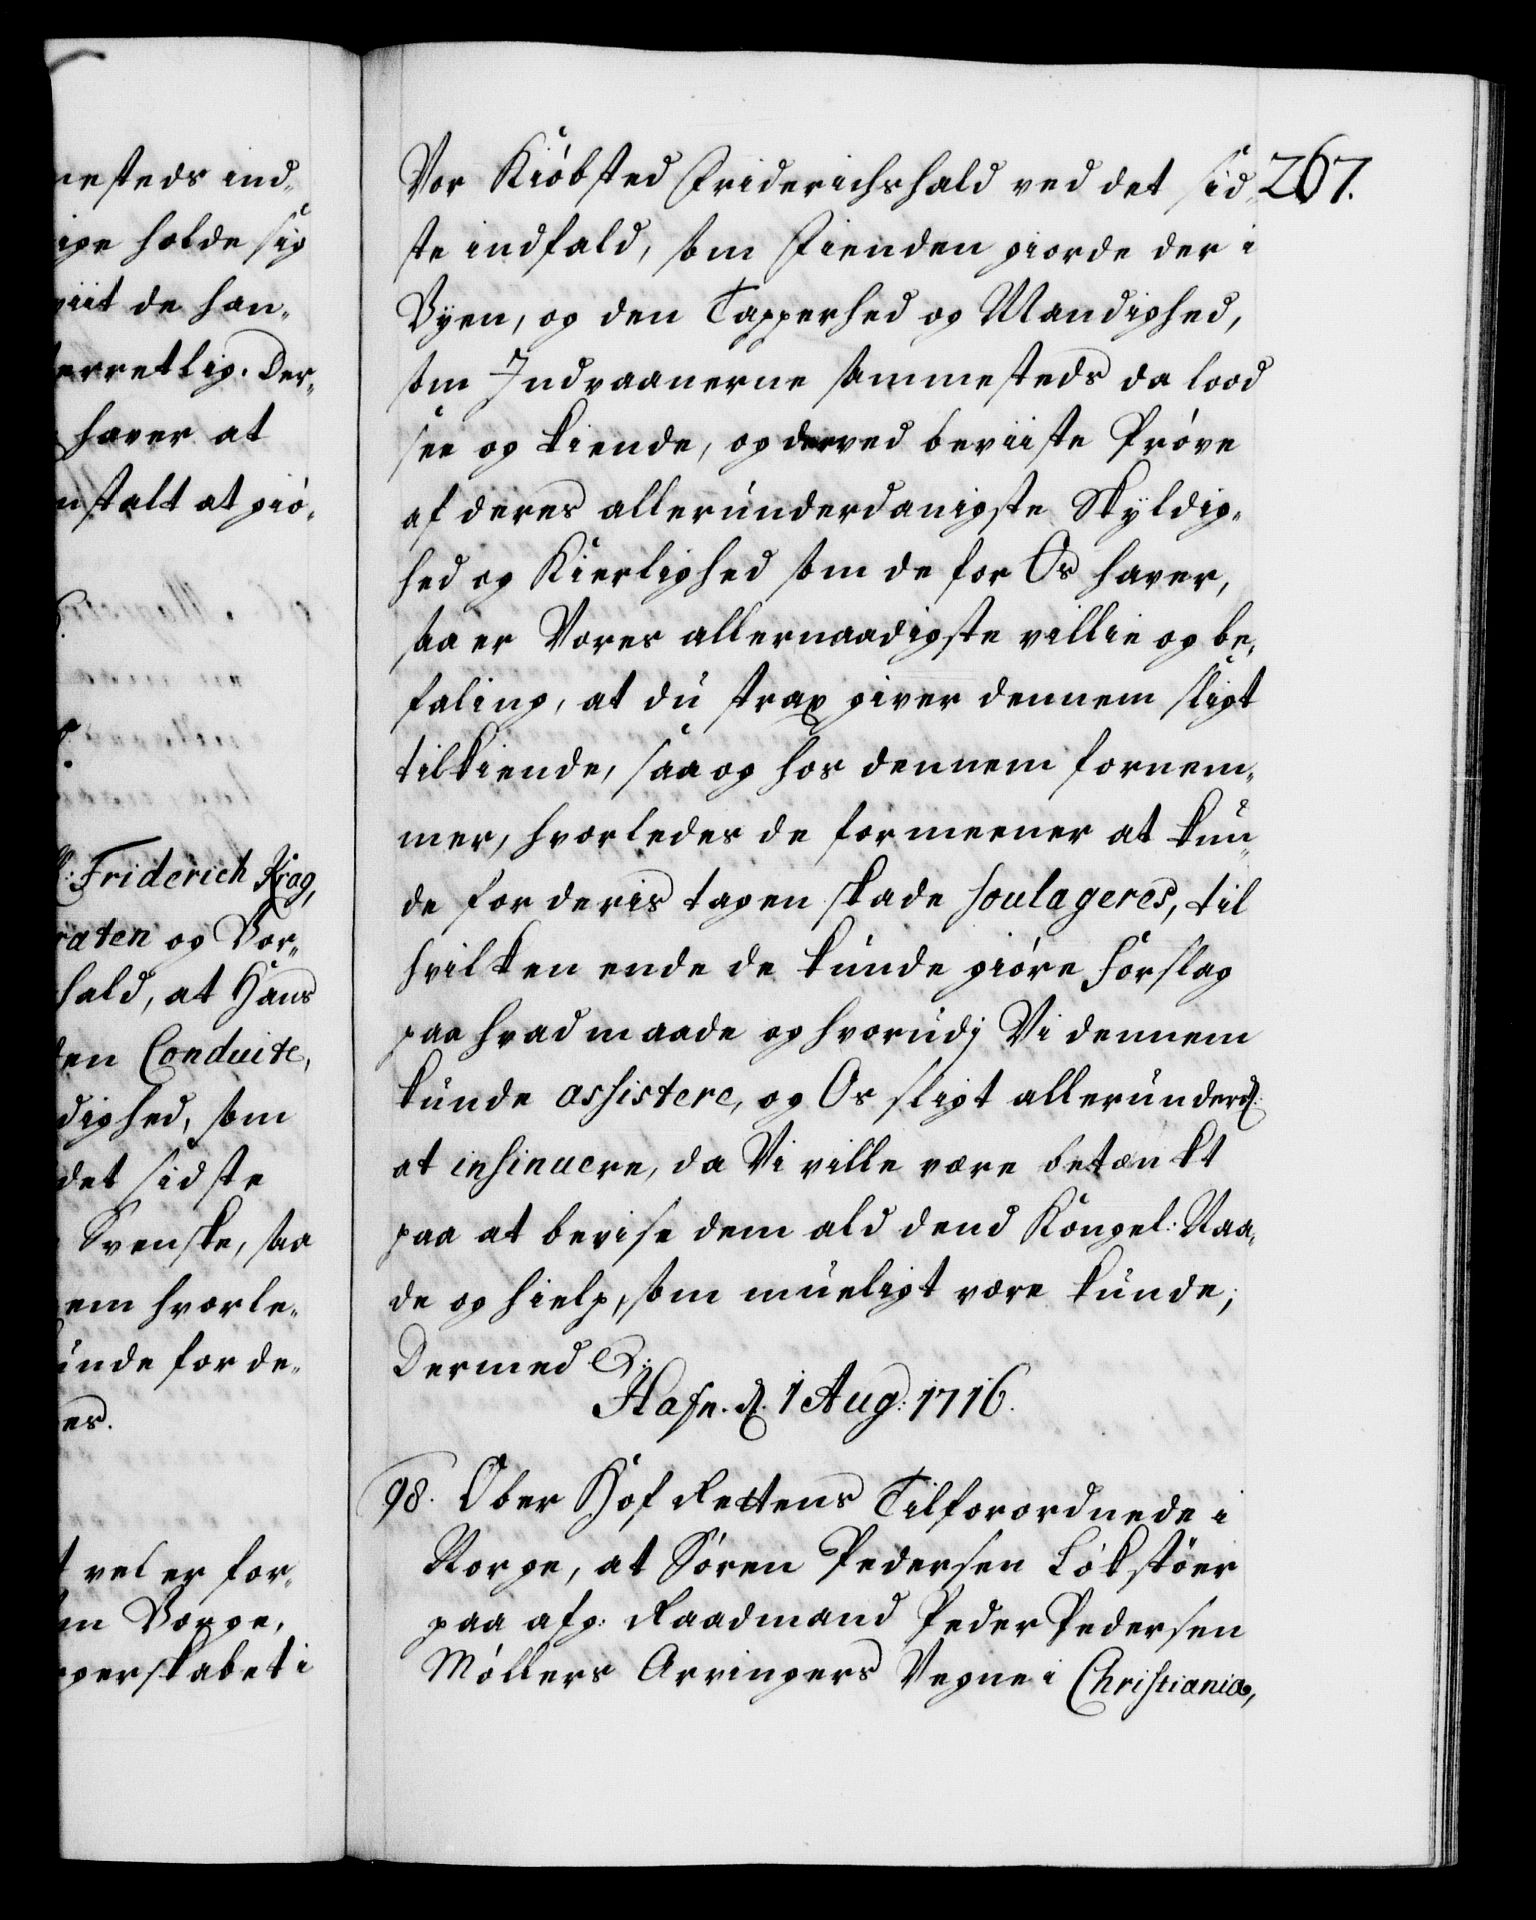 nesteds ind-
ige holde sig
viit de han-
erretlig. Der-
haver at
nstalt at giö-
Friderich Krag,
raten og Vor-
hald, at Hans
en Conduite,
dighed, som
det sidste
Svenske, saa
em hvorle-
unde for de-
es.
vel er for-
m Borge,
gerskabet i
267.
Vor Kiöbsted Friderichshald ved det sid-
ste indfald, som Fienden giorde der i
Byen, og den Tapperhed og Mandighed,
som Indvaanerne sammesteds da lood
see og kiende, og derved beviiste Pröve
af deres allerunderdanigste Skyldig-
hed og Kierlighed som de for Os haver,
saa er Vores allernaadigste villie og be-
faling, at du strax giver dennem sligt
tilkiende, saa og hos dennem fornem-
mer, hvorledes de formeener at kun-
de for deris tagen skade soulageres, til
hvilken ende de kunde giöre Forslag
paa hvad maade og hvorudj Vi dennem
kunde assistere, og Os sligt allerunderd:
at insinuere, da Vi ville være betænkt
paa at bevise dem ald dend Kongel: Naa-
de og hielp, som mueligt være kunde;
Dermed &:
Hafn. d. 1 Aug: 1716.
98. Ober Hof Rettens Tilforordnede i
Norge, at Sören Pedersen Lökstöer
paa afg: Raadmand Peder Pedersen
Möllers Arvingers Vegne i Christiania,